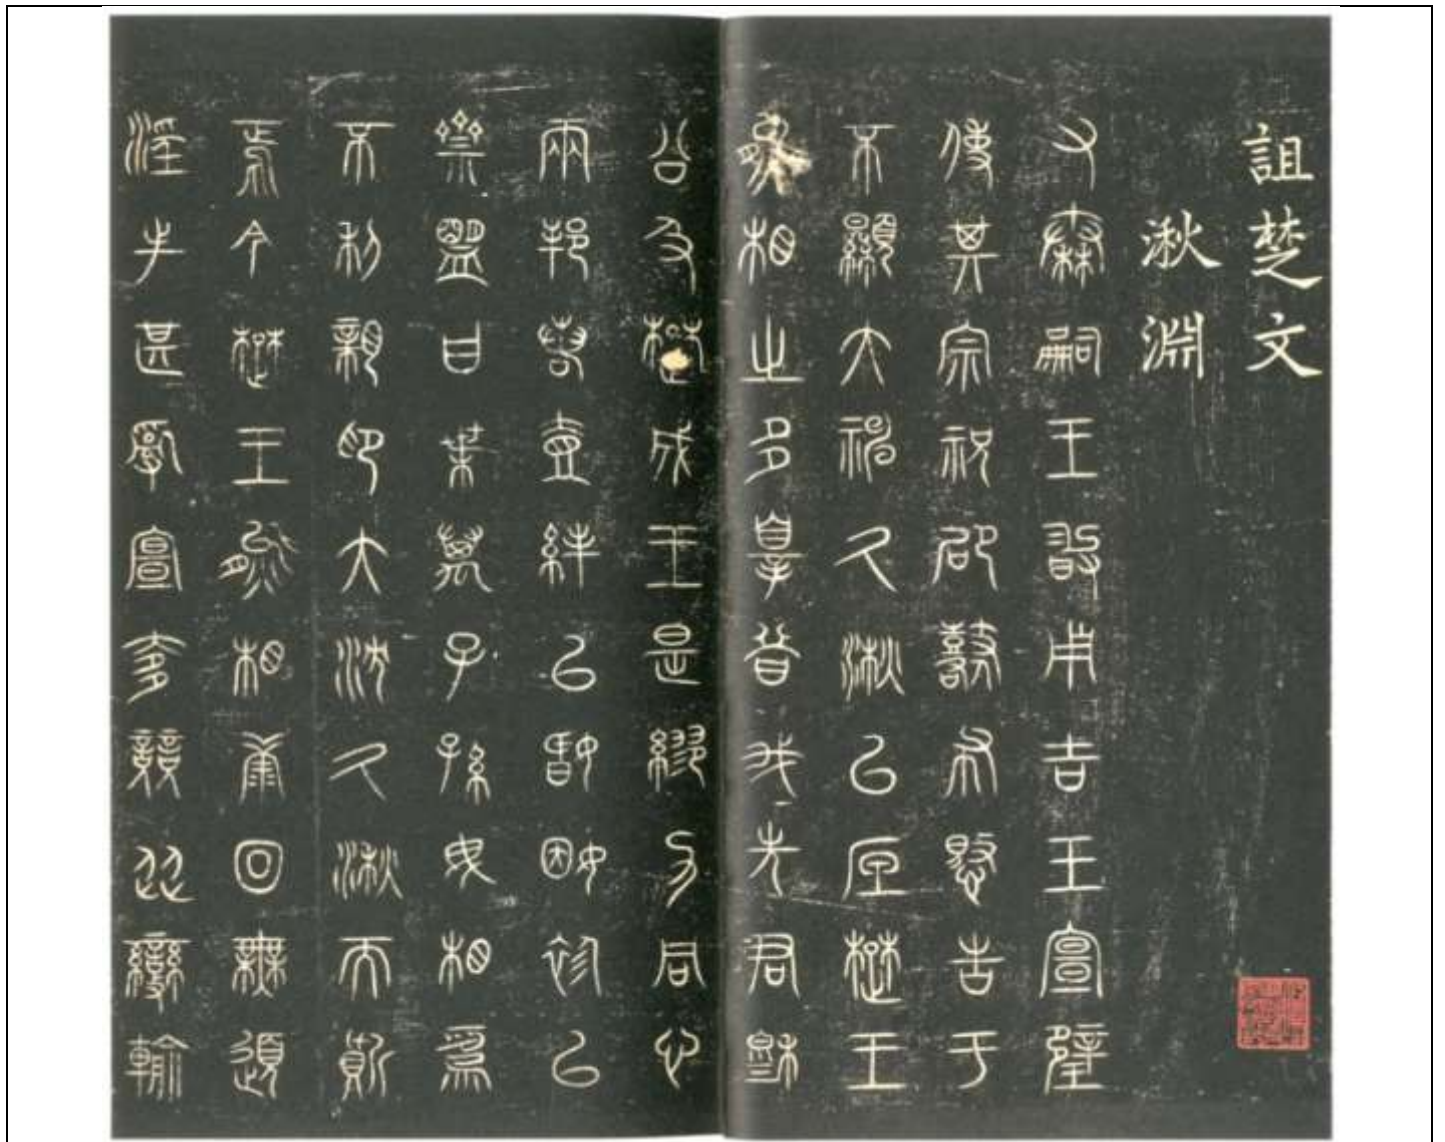 詛楚文
湫淵
又秦嗣王敢用吉玉宣璧
使其宗祝邵鼛布憝告于
不顯大沈久湫以厎楚王
熊相之多辠昔我先君穆
公及楚成王是繆力同心
兩邦若壹絆以婚姻袗以
齋盟曰枼萬子孫毋相為
不利親卬大沈久湫而質
焉今楚王熊相康回無道
淫失甚亂宣奓競從變輸